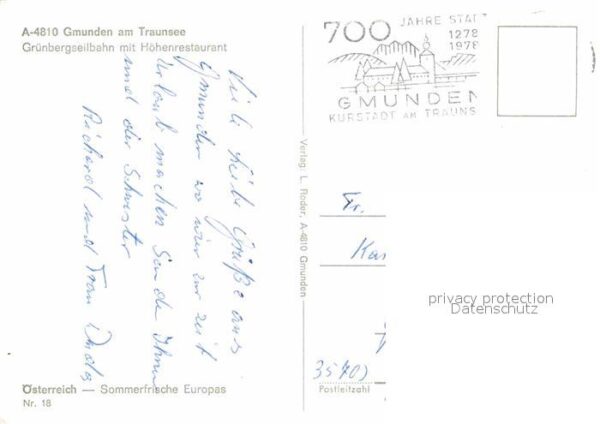 A-4810 Gmunden am Traunsee
Grünbergseilbahn mit Höhenrestaurant
Viele liebe Grüße aus
Gmunden wo wir zur zeit
Urlaub machen Sende Ihnen
und der Schwester
Richard und Frau
Österreich — Sommerfrische Europas
Nr. 18
Verlag: L. Roder, A-4810 Gmunden
700 JAHRE STADT
1278
1978
GMUNDEN
KURSTADT AM TRAUNS
Fr.
Kar
privacy protection
Datenschutz
Postleitzahl